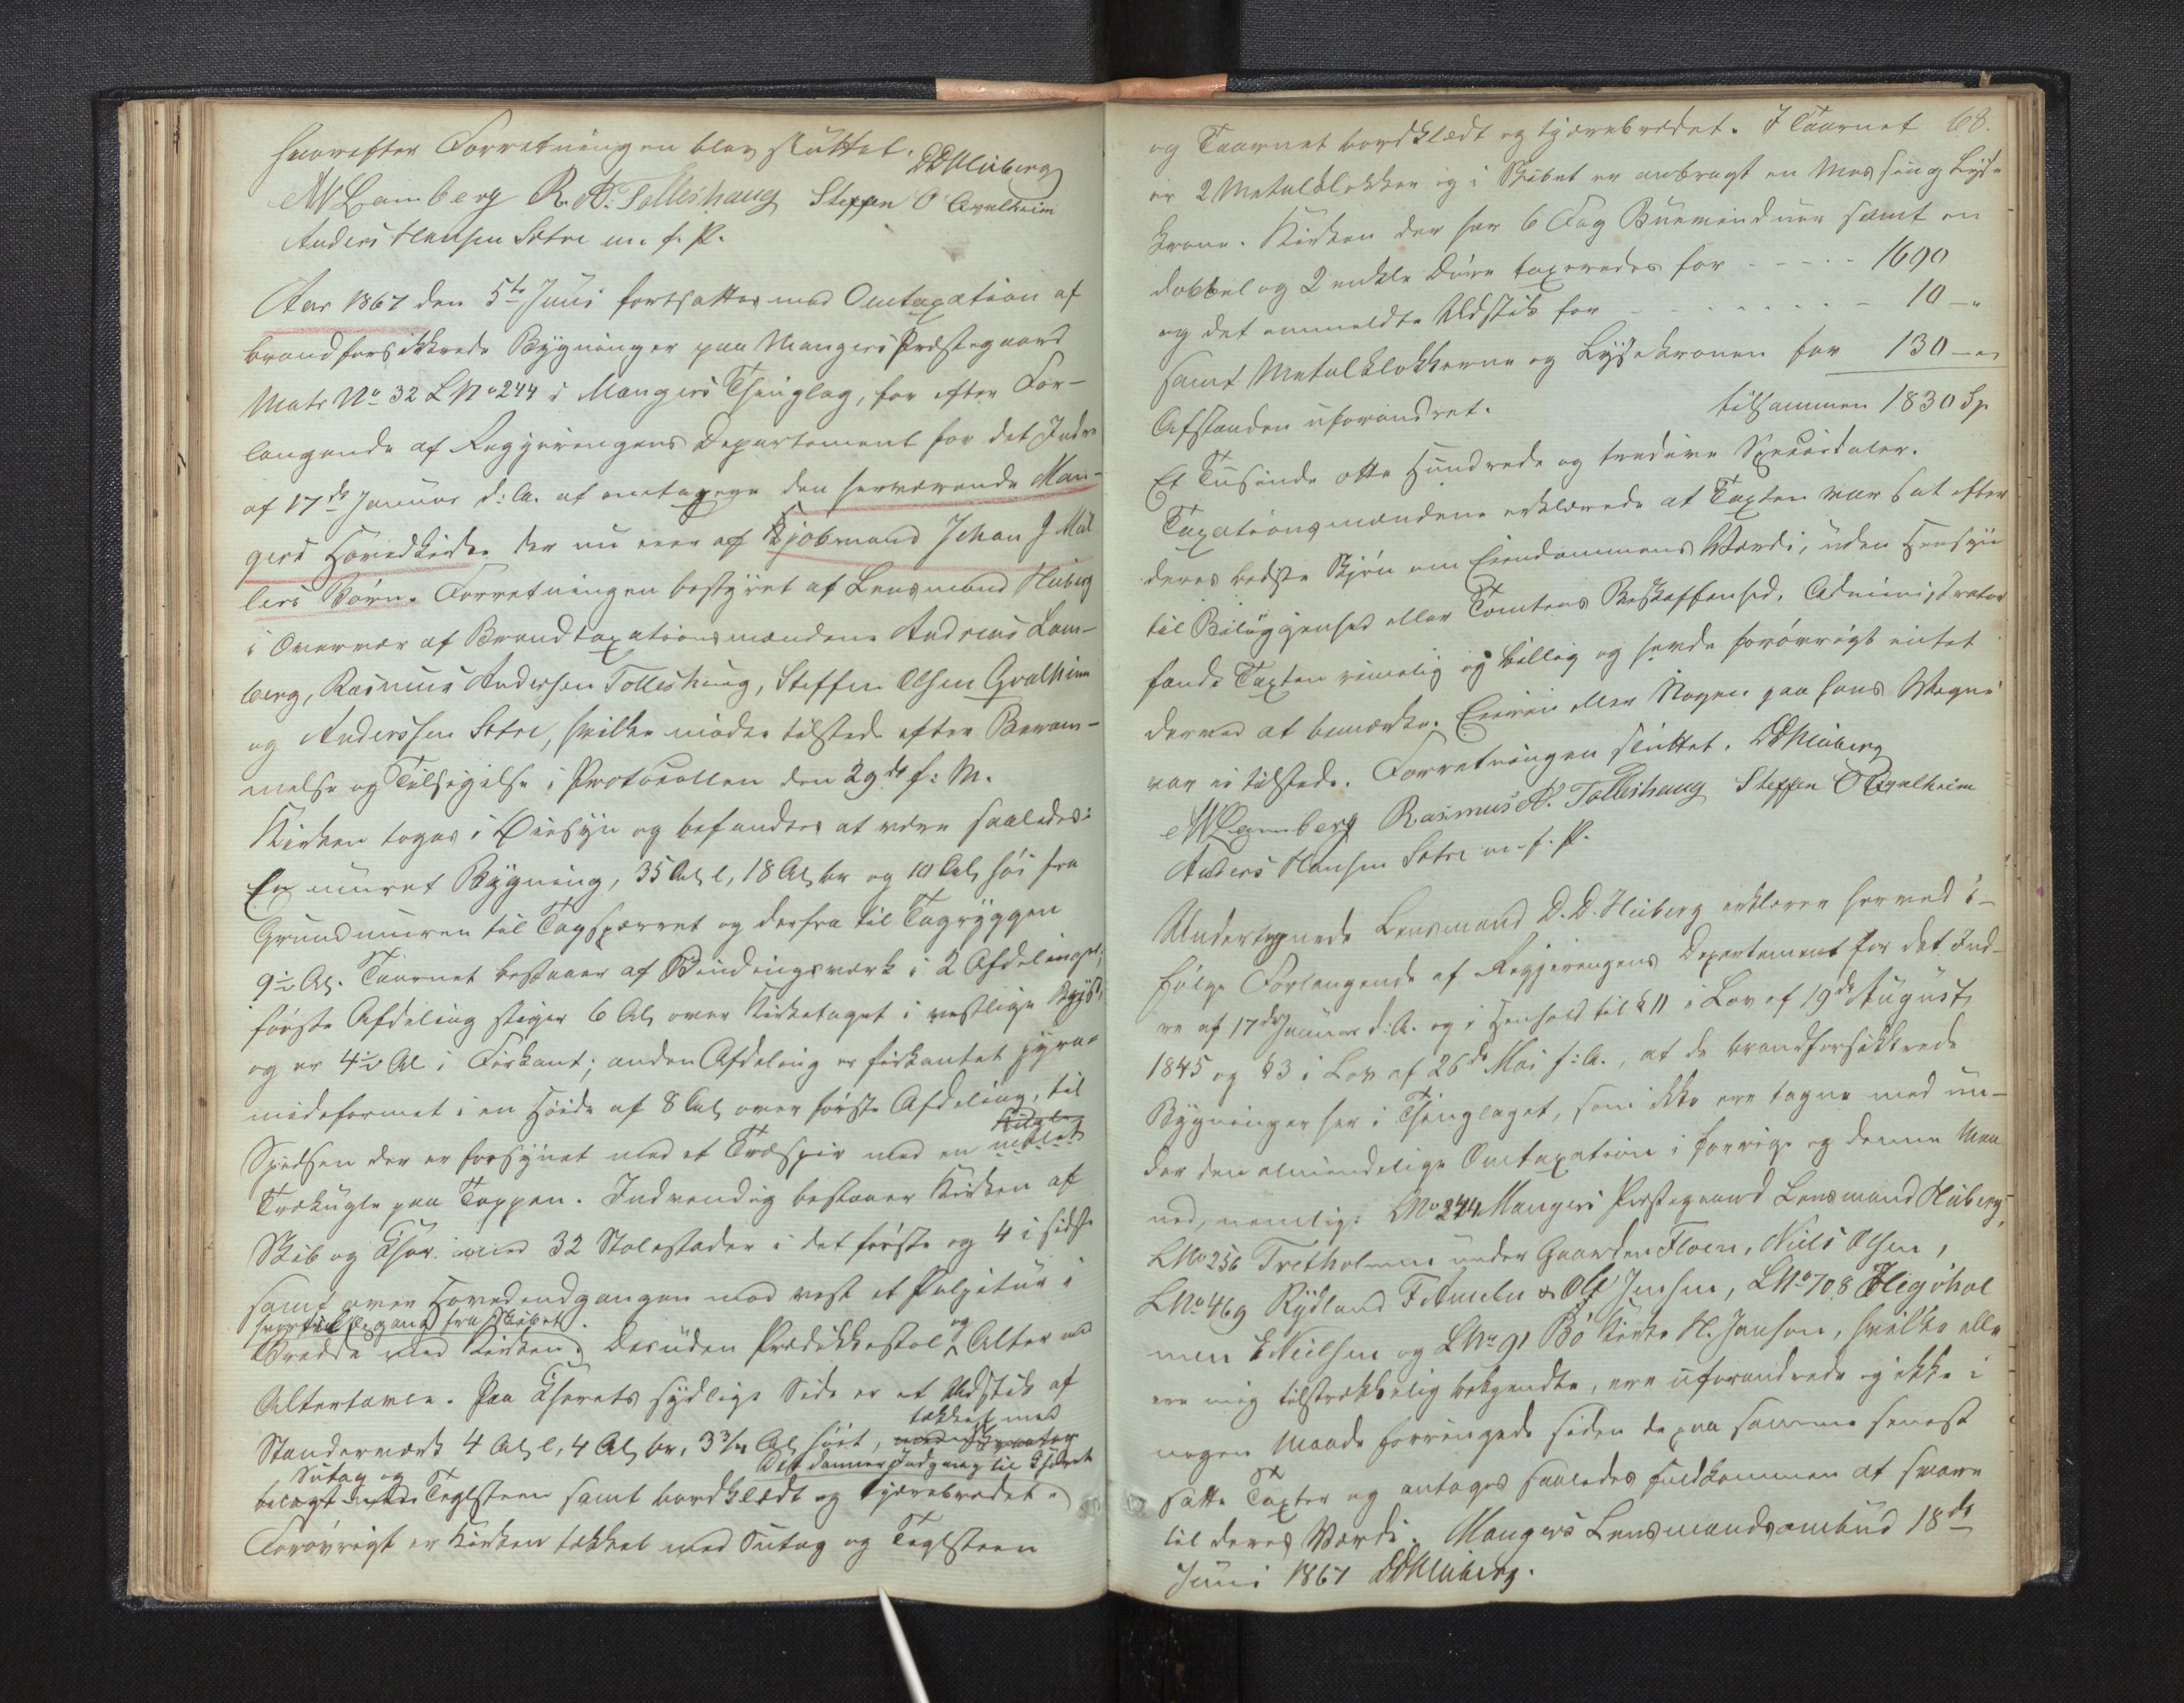 hvorefter Forretningen blev sluttet. DDHuiberg
AWLamberg R. A. Tolleshaug Steffen O Qvalheim
Anders Hansen Sætre m. f. P.
Aar 1867 den 5te Juni fortsattes med Omtaxation af
brandforsikkrede Bygninger paa Mangers Præstegaard
Matr No 32 LNo 244 i Mangers Thinglag, for efter For-
langende af Regjeringens Departement for det Indre
af 17de Januar d: A. at omtaxere den herværende Man-
gers Hovedkirke der nu eies af Kjøbmand Johan J Mül
lers Børn. Forretningen bestyret af Lensmand Huiberg
i Overvær af Brandtaxationsmændene Andreas Lam-
berg, Rasmus Andersen Tolleshaug, Steffen Olsen Qvalheim
og Anderssen Sætre, hvilke mødte tilstede efter Beram-
melse og Tilsigelse i Protocollen den 29de f: M.
Kirken toges i Øiesyn og befandtes at være saaledes:
En muret Bygning, 35 Al l, 18 Al br og 10 Al høi fra
Grundmuren til Tagsperret og derfra til Tagryggen
9½ Al. Taarnet bestaaer af Bindingsværk i 2 Afdelinger;
første Afdeling stiger 6 Al over Kirketaget i vestlige
og er 4½ Al i Firkant; anden Afdeling er firkantet pyra-
mideformet i en Høide af 8 Al over første Afdeling, til
Spidsen der er forsynet med et Træspir med en malet
Trækugle paa Toppen. Indvendig bestaaer Kirken af
Skib og Chor med 32 Stolestader i det første og 4 i sidste
samt over Hovedindgangen mod vest et Pulpitur i
hvortil Opgang fra Skibet.
Bredde med Kirken. Desuden Prædikkestol og Alter m
Altertavle. Paa Chorets sydlige Side er et Udstik af
Standerværk 4 Al l, 4 Al br, 3¾ Al høit, tækket med
Det danner Indgang til Choret
Sutag og
belagt med Teglsteen samt bordklædt og tjærebredet.
Forøvrigt er Kirken tækket med Sutag og Teglsteen
68.
og Taarnet bordklædt og tjærebredet. I Taarnet
er 2 Metalklokker og i Skibet er anbragt en Messing Lyse
krone. Kirken der har 6 Fag Buevinduer samt en
dobbel og 2 enkle Døre taxeredes for - - - - - 1690
og det anmeldte Udstik for - - - - - - - 10 - "
samt Metalklokkerne og Lysekronen for 130 - "
Afstanden uforandret. tilsammen 1830 Sp
Et Tusinde otte Hundrede og tredive Speciedaler.
Taxationsmændene erklærede at Taxten var sat efter
deres bedste Skjøn om Eiendommens Værdi, uden Hensyn
til Beliggenhed eller Tomtens Beskaffenhed. Administrator
fandt Taxten rimelig og billig og havde forøvrigt intet
derved at bemærke. Eieren eller Nogen paa hans Vegne
var ei tilstede. Forretningen sluttet. DDHuiberg
AWLamberg Rasmus A. Tolleshaug Steffen O Qvalheim
Anders Hansen Sætre m. f. P.
Undertegnede Lensmand D. D. Huiberg erklærer herved i-
følge Forlangende af Regjeringens Departement for det Ind-
re af 17de Januar d: A. og i Henhold til § 11 i Lov af 19de August
1845 og § 3 i Lov af 26de Mai f: A., at de brandforsikkrede
Bygninger her i Thinglaget, som ikke ere tagne med un-
der den almindelige Omtaxation i forrige og denne Maa
ned, nemlig: LNo 244 Mangers Præstegaard Lensmand Huiberg,
LNo 256 Tretholmen under Gaarden Floen, Niels Olsen,
LNo 469 Rydland Jensen, LNo 708
men E Nielsen og LNo 91 Bø Kirke H. Janson, hvilke alle
ere mig tilstrækkelig bekjendte, ere uforandrede og ikke i
nogen Maade forringede siden de paa samme senest
satte Taxter og antages saaledes fuldkommen at svare
til deres Værdi. Mangers Lensmandsombud 18de
Juni 1867 DDHuiberg.